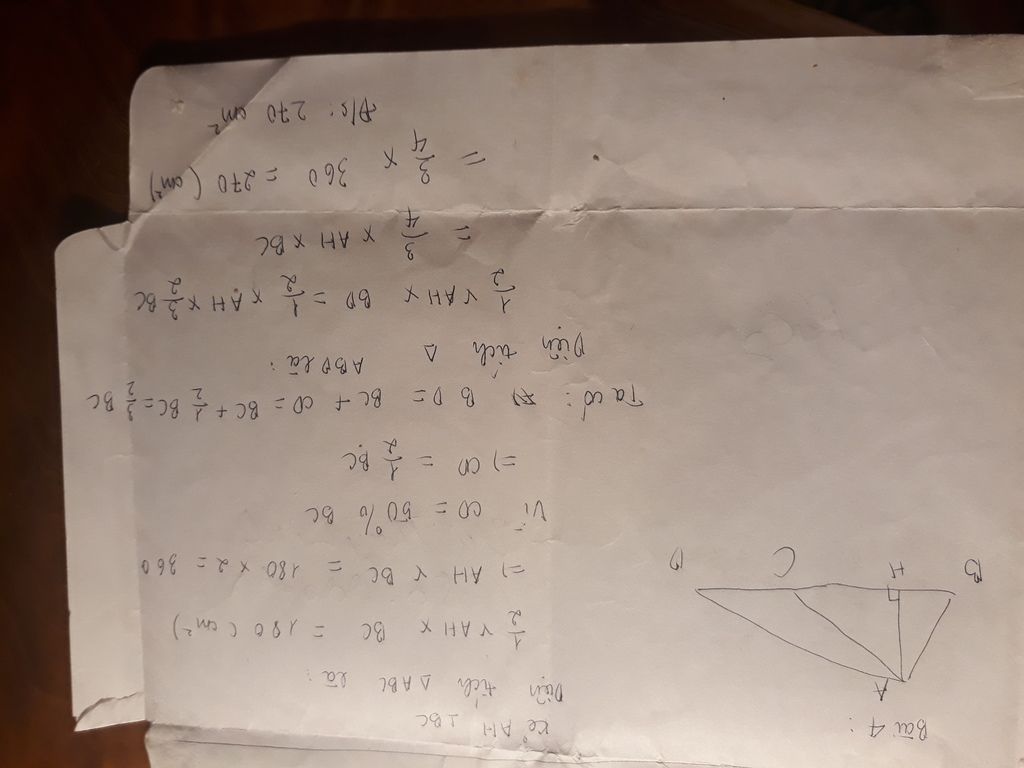 Bài 4:
A
B H C D
Kẻ AH ⊥ BC
Diện tích △ ABC là:
1/2 x AH x BC = 180 (cm²)
=) AH x BC = 180 x 2 = 360
Vì CD = 50% BC
=) CD = 1/2 BC
Ta có: BD = BC + CD = BC + 1/2 BC = 3/2 BC
Diện tích △ ABD là:
1/2 x AH x BD = 1/2 x AH x 3/2 BC
= 3/4 x AH x BC
= 3/4 x 360 = 270 (cm²)
Đ/s: 270 cm²